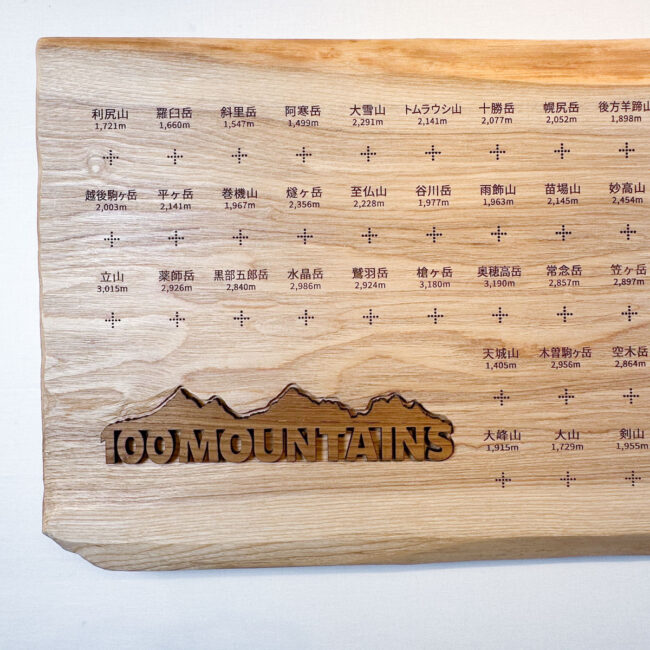 利尻山 羅臼岳 斜里岳 阿寒岳 大雪山 トムラウシ山 十勝岳 幌尻岳 後方羊蹄山
1,721m 1,660m 1,547m 1,499m 2,291m 2,141m 2,077m 2,052m 1,898m
越後駒ヶ岳 平ヶ岳 巻機山 燧ヶ岳 至仏山 谷川岳 雨飾山 苗場山 妙高山
2,003m 2,141m 1,967m 2,356m 2,228m 1,977m 1,963m 2,145m 2,454m
立山 薬師岳 黒部五郎岳 水晶岳 鷲羽岳 槍ヶ岳 奥穂高岳 常念岳 笠ヶ岳
3,015m 2,926m 2,840m 2,986m 2,924m 3,180m 3,190m 2,857m 2,897m
天城山 木曽駒ヶ岳 空木岳
1,405m 2,956m 2,864m
100MOUNTAINS
大峰山 大山 剣山
1,915m 1,729m 1,955m